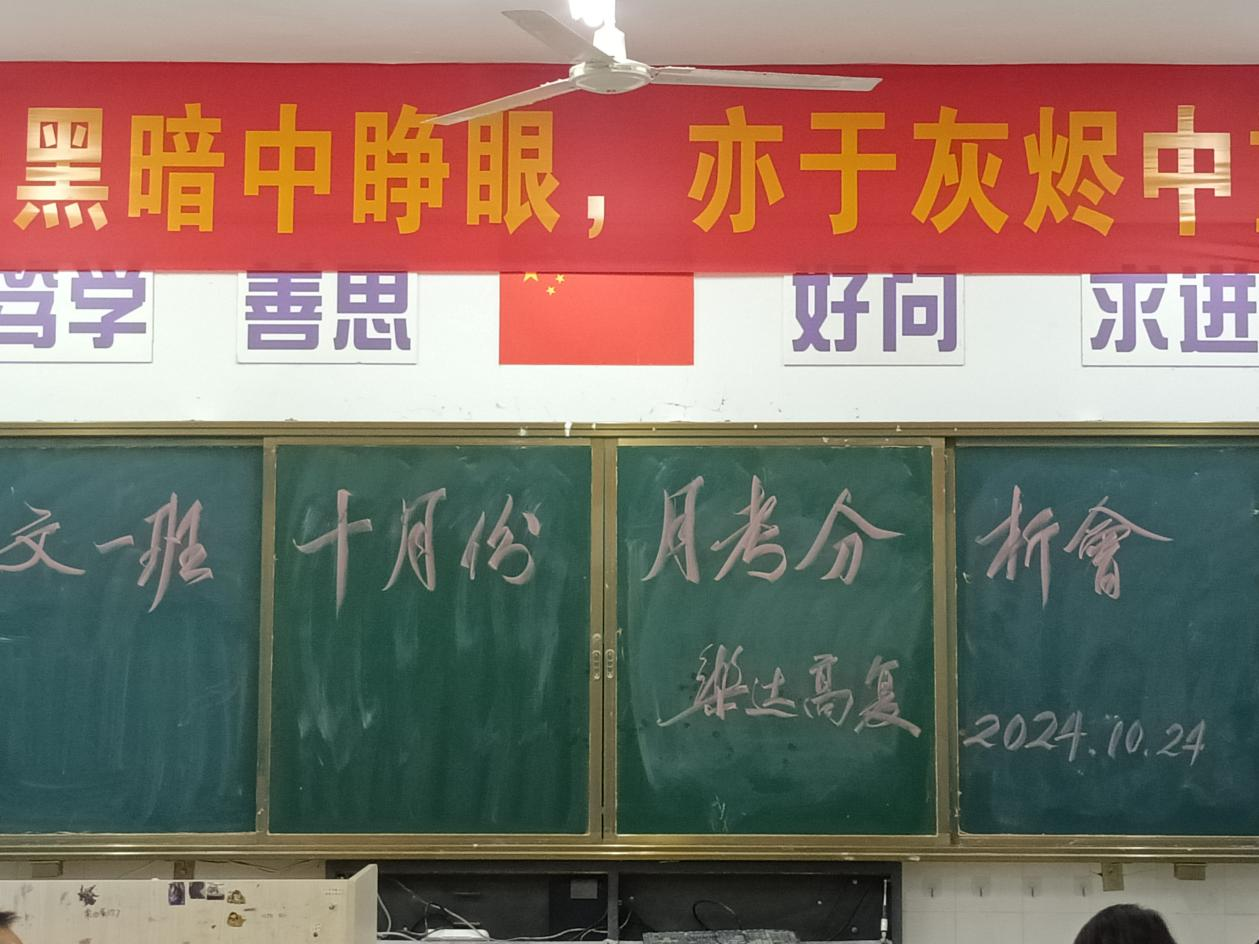 黑暗中睁眼，亦于灰烬中
笃学 善思 好问 求进
文一班 十月份 月考分析會
樂达高复
2024.10.24